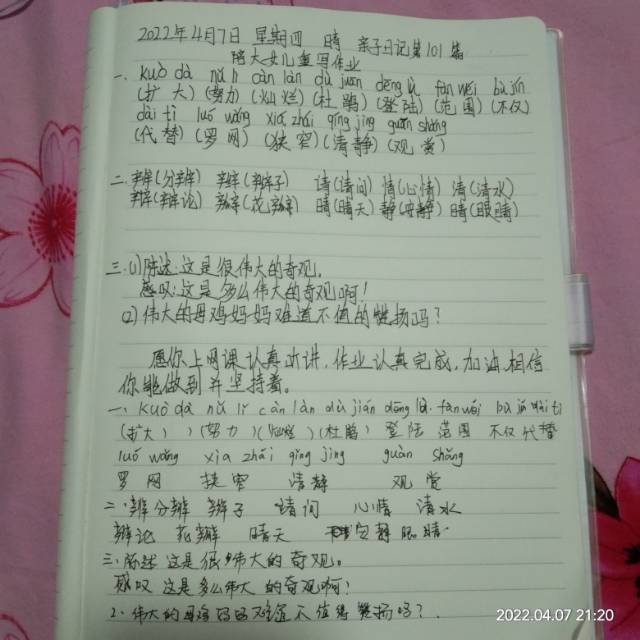 2022年4月7日 星期四 晴 亲子日记第101篇
陪大女儿重写作业
一、kuò dà nǔ lì càn làn dù juān dēng lù fàn wéi bù jǐn
(扩大)(努力)(灿烂)(杜鹃)(登陆)(范围)(不仅)
dài tì luó wǎng xiá zhǎi qīng jìng guān shǎng
(代替)(罗网)(狭窄)(清静)(观赏)
二、辨(分辨) 辫(辫子) 请(请问) 情(心情) 清(清水)
辩(辩论) 瓣(花瓣) 晴(晴天) 静(安静) 睛(眼睛)
三、(1)陈述:这是很伟大的奇观。
感叹:这是多么伟大的奇观啊!
(2)伟大的母鸡妈妈难道不值的赞扬吗?
愿你上网课认真听讲,作业认真完成,加油,相信
你能做到并坚持着。
一、kuò dà nǔ lì càn làn dù juān dēng lù fàn wéi bù jǐn dài tì
(扩大)(努力)(灿烂)(杜鹃) 登陆 范围 不仅 代替
luó wǎng xiá zhǎi qīng jìng guān shǎng
罗网 狭窄 清静 观赏
二、辨分辨 辫子 请问 心情 清水
辩论 花瓣 晴天 安静 眼睛
三、陈述 这是很伟大的奇观。
感叹 这是多么伟大的奇观啊!
2、伟大的母鸡妈妈难道不值得赞扬吗?
2022.04.07 21:20